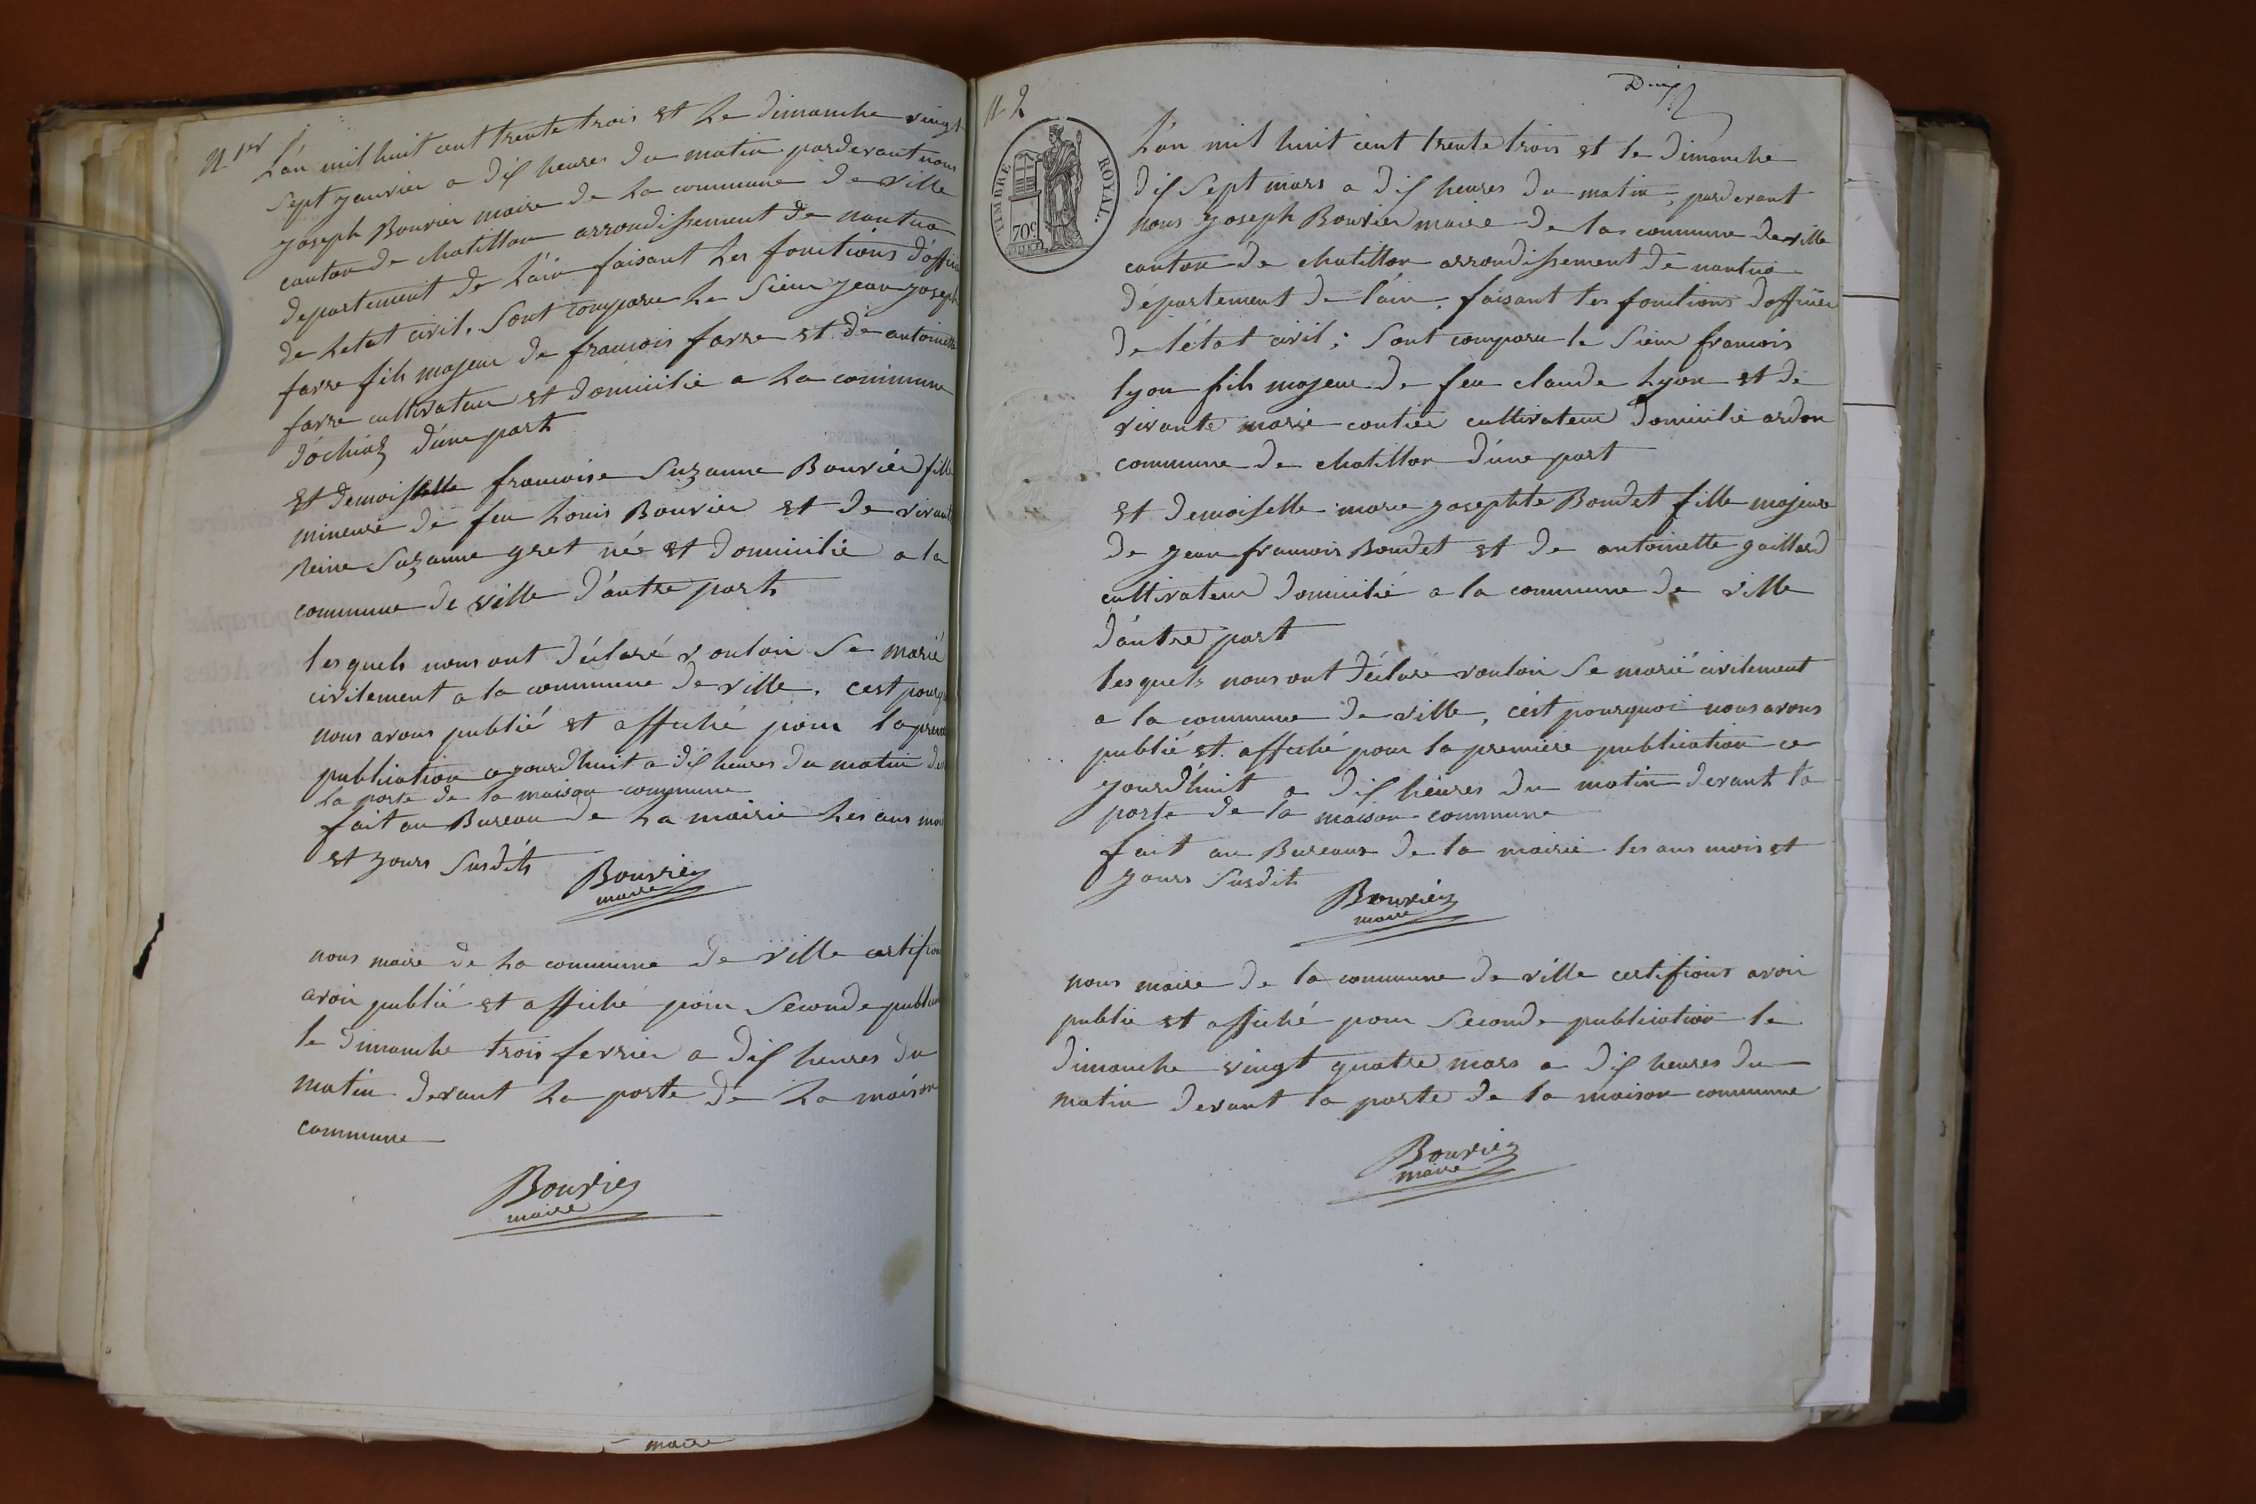 N 1er
L'an mil huit cent trente trois et Le dimanche vingt
sept janvier a dix heures du matin pardevant nous
joseph Bouvier maire de La commune de ville
canton de chatillon arrondissement de nantua
departement de L'ain faisant Les fonctions d'offici
de Letat civil. Sont comparu Le Sieur jean joseph
favre fils majeur de francois favre et de antoinette
favre cultivateur et domicilié a La commune
d'ochiaz d'une part
et demoiselle francoise Suzanne Bouvier fille
mineure de feu Louis Bouvier et de vivante
Reine Suzanne gret née et domicilié a la
commune de ville d'autre part
lesquels nous ont déclaré vouloir Se marié
civilement a la commune de ville. c'est pourq
nous avons publié et affiché pour la prem
publication ce jourdhuit a dix heures du matin de
La porte de la maison commune
fait au Bureau de La mairie Les ans moi
et jours Susdits
Bouvier
maire
nous maire de La commune de ville certifion
avoir publié et affiché pour Seconde publica
le dimanche trois fevrier a dix heures du
matin devant La porte de La maison
commune
Bouvier
maire
maire
N 2
TIMBRE ROYAL.
70c
L'an mil huit cent trente trois et le dimanche
dix Sept mars a dix heures du matin, pardevant
nous joseph Bouvier maire de la commune de ville
canton de chatillon arrondissement de nantua
département de l'ain. faisant les fonctions d'officier
de l'état civil; Sont comparu le Sieur francois
lyon fils majeur de feu claude Lyon et de
vivante marie coutier cultivateur domicilié ardon
commune de chatillon d'une part
et demoiselle marie josephte Boudet fille majeure
de jean francois Boudet et de antoinette gaillard
cultivateur domicilié a la commune de ville
d'autre part
lesquels nous ont déclaré vouloir Se marié civilement
a la commune de ville, c'est pourquoi nous avons
publié et affiché pour la premiere publication ce
jourdhuit a dix heures du matin devant la
porte de la maison commune
fait au Bureaux de la mairie les ans mois et
jours Susdits
Bouvier
maire
nous maire de la commune de ville certifions avoir
publié et affiché pour Seconde publication le
dimanche vingt quatre mars a dix heures du
matin devant la porte de la maison commune
Bouvier
maire